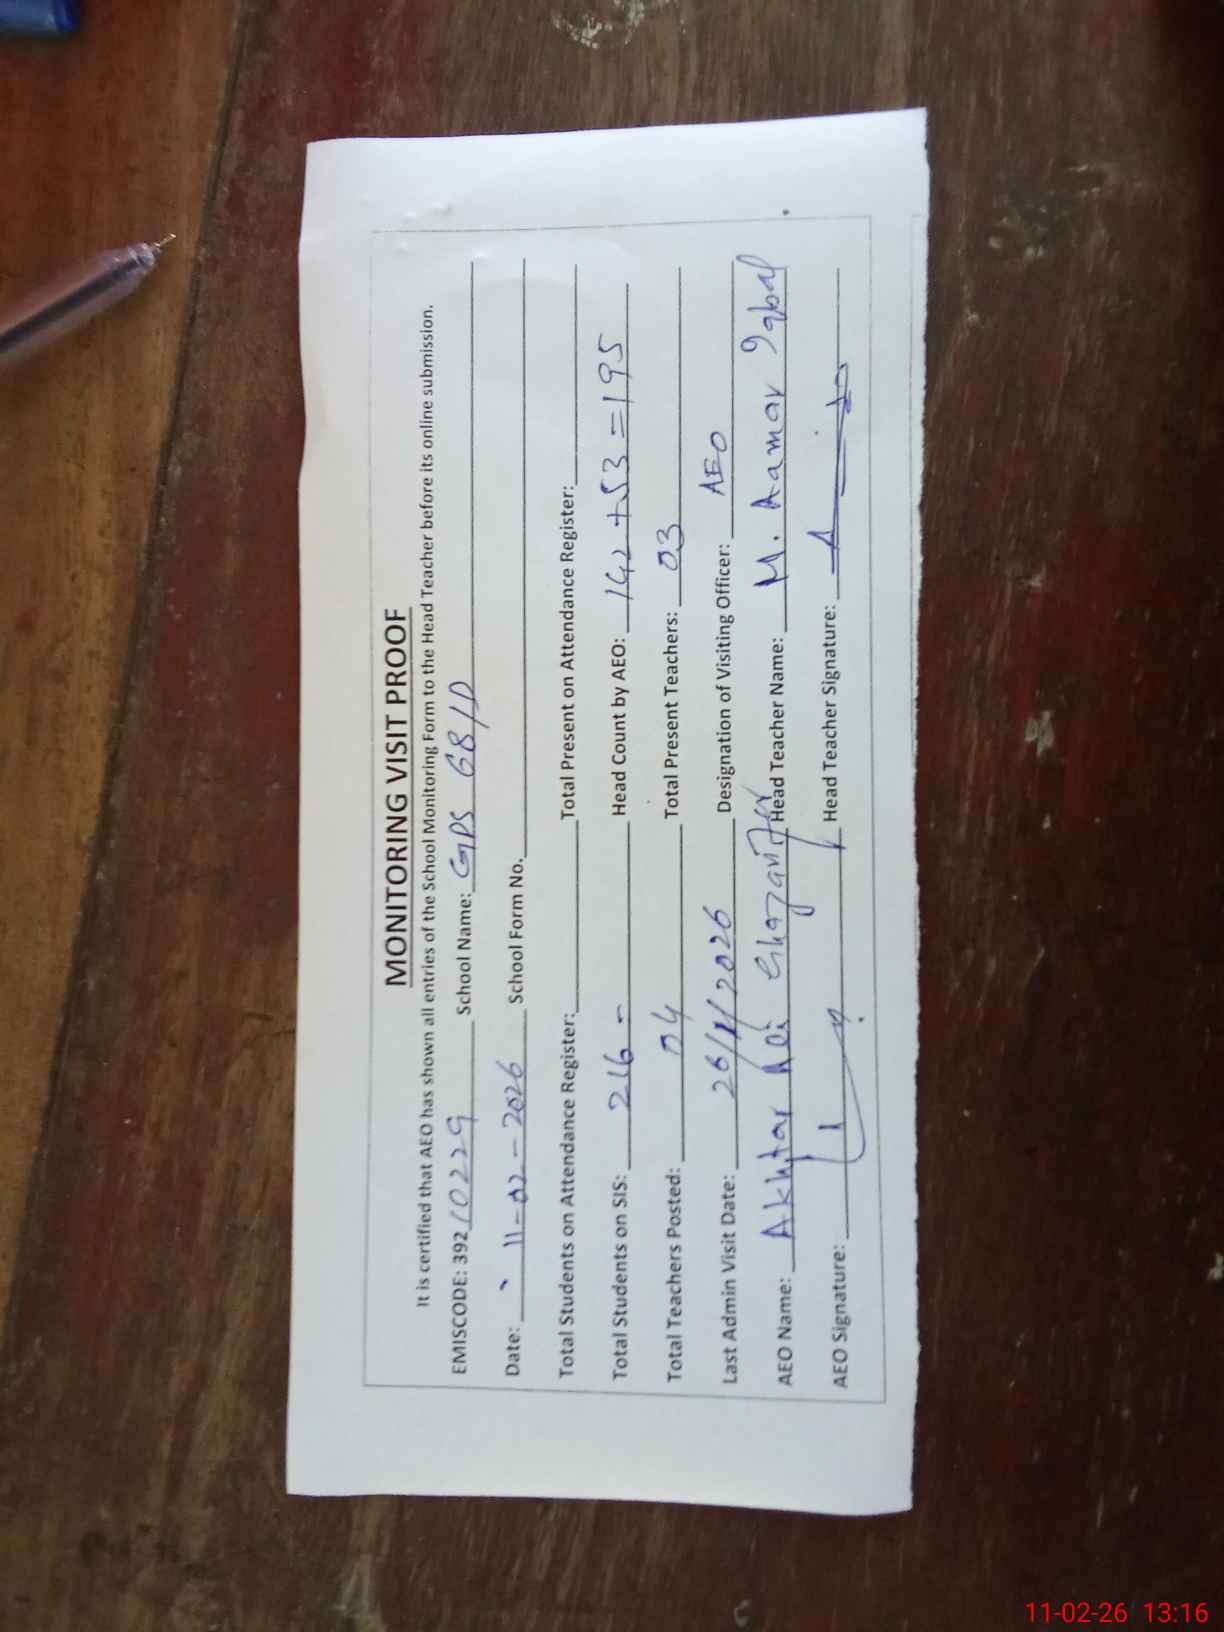 MONITORING VISIT PROOF
It is certified that AEO has shown all entries of the School Monitoring Form to the Head Teacher before its online submission.
EMISCODE: 392 10229 School Name: GPS 68/D
Date: 11-02-2026 School Form No.
Total Students on Attendance Register: Total Present on Attendance Register:
Total Students on SIS: 216 - Head Count by AEO: 142 + 53 = 195
Total Teachers Posted: 04 Total Present Teachers: 03
Last Admin Visit Date: 26/1/2026 Designation of Visiting Officer: AEO
AEO Name: Akhtar Ali Ghazanfar Head Teacher Name: M. Aamar Iqbal
AEO Signature: Head Teacher Signature:
11-02-26 13:16